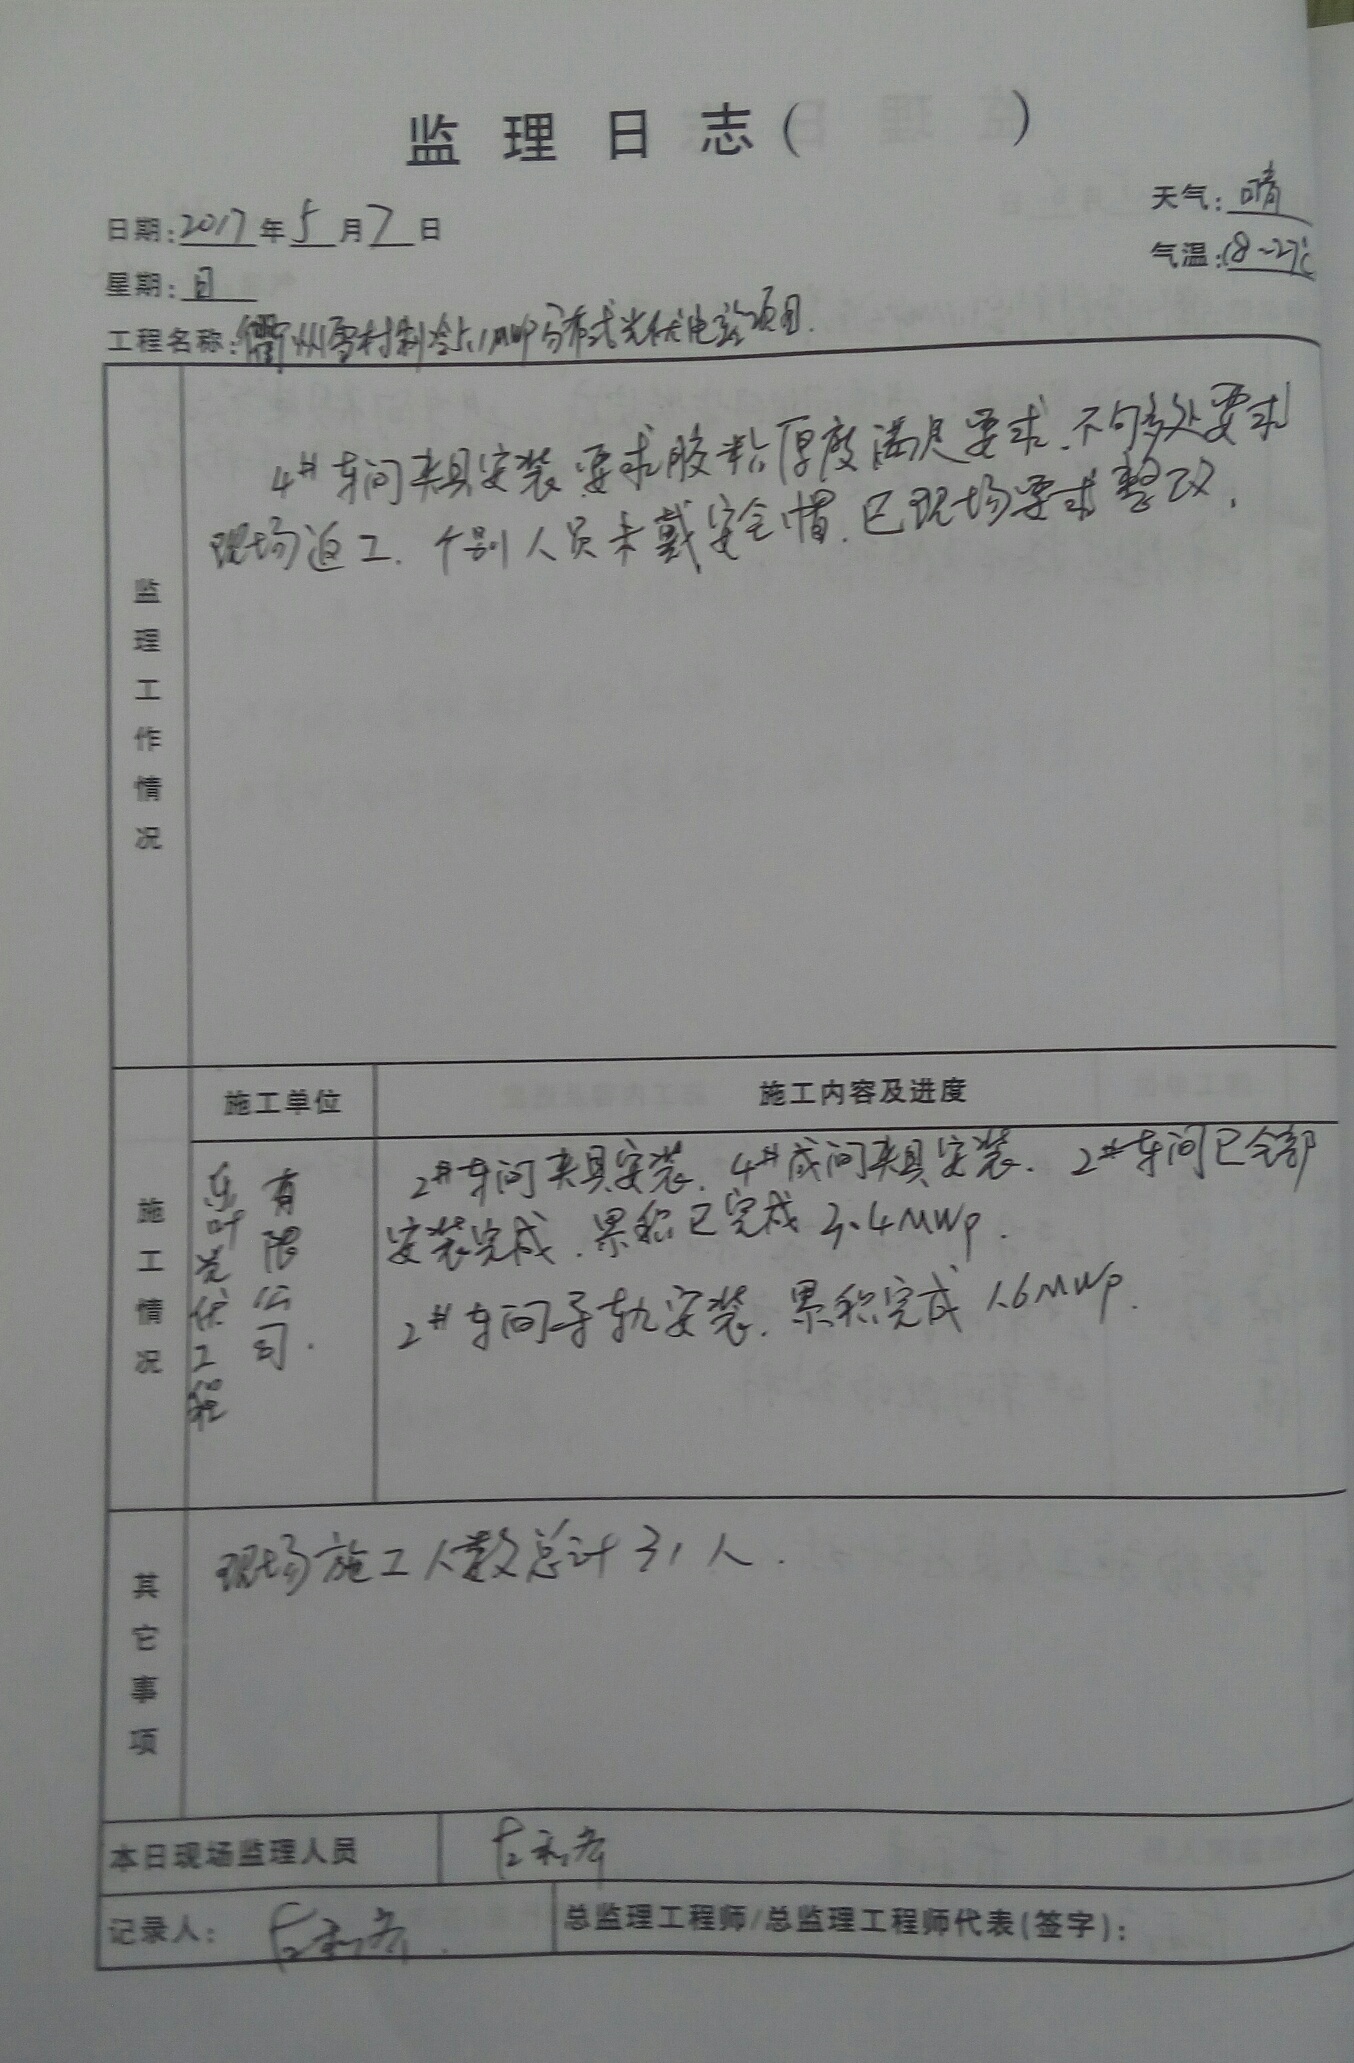 监理日志( )
天气:晴
日期:2017年5月7日
气温:18~27℃
星期:日
工程名称:衢州雪村制冷5.1MWP分布式光伏电站项目.
监理工作情况
4#车间夹具安装.要求胶粘厚度满足要求.不同多处要求
现场返工.个别人员未戴安全帽.已现场要求整改.
施工单位
施工内容及进度
施工情况
乐叶光伏工程
有限公司.
2#车间夹具安装.4#成间夹具安装.2#车间已全部
安装完成.累积已完成3.4MWp.
2#车间导轨安装.累积完成1.6MWp.
其它事项
现场施工人数总计31人.
本日现场监理人员
记录人:
总监理工程师/总监理工程师代表(签字):